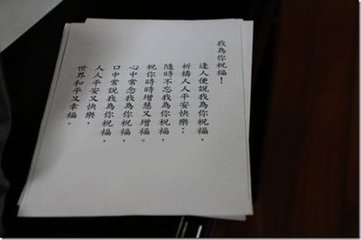 我為你祝福！
逢人便說我為你祝福，
祈禱人人平安快樂；
隨時不忘我為你祝福，
祝你時時增慧又增福。
心中常念我為你祝福，
口中常說我為你祝福，
人人平安又快樂，
世界和平又幸福。